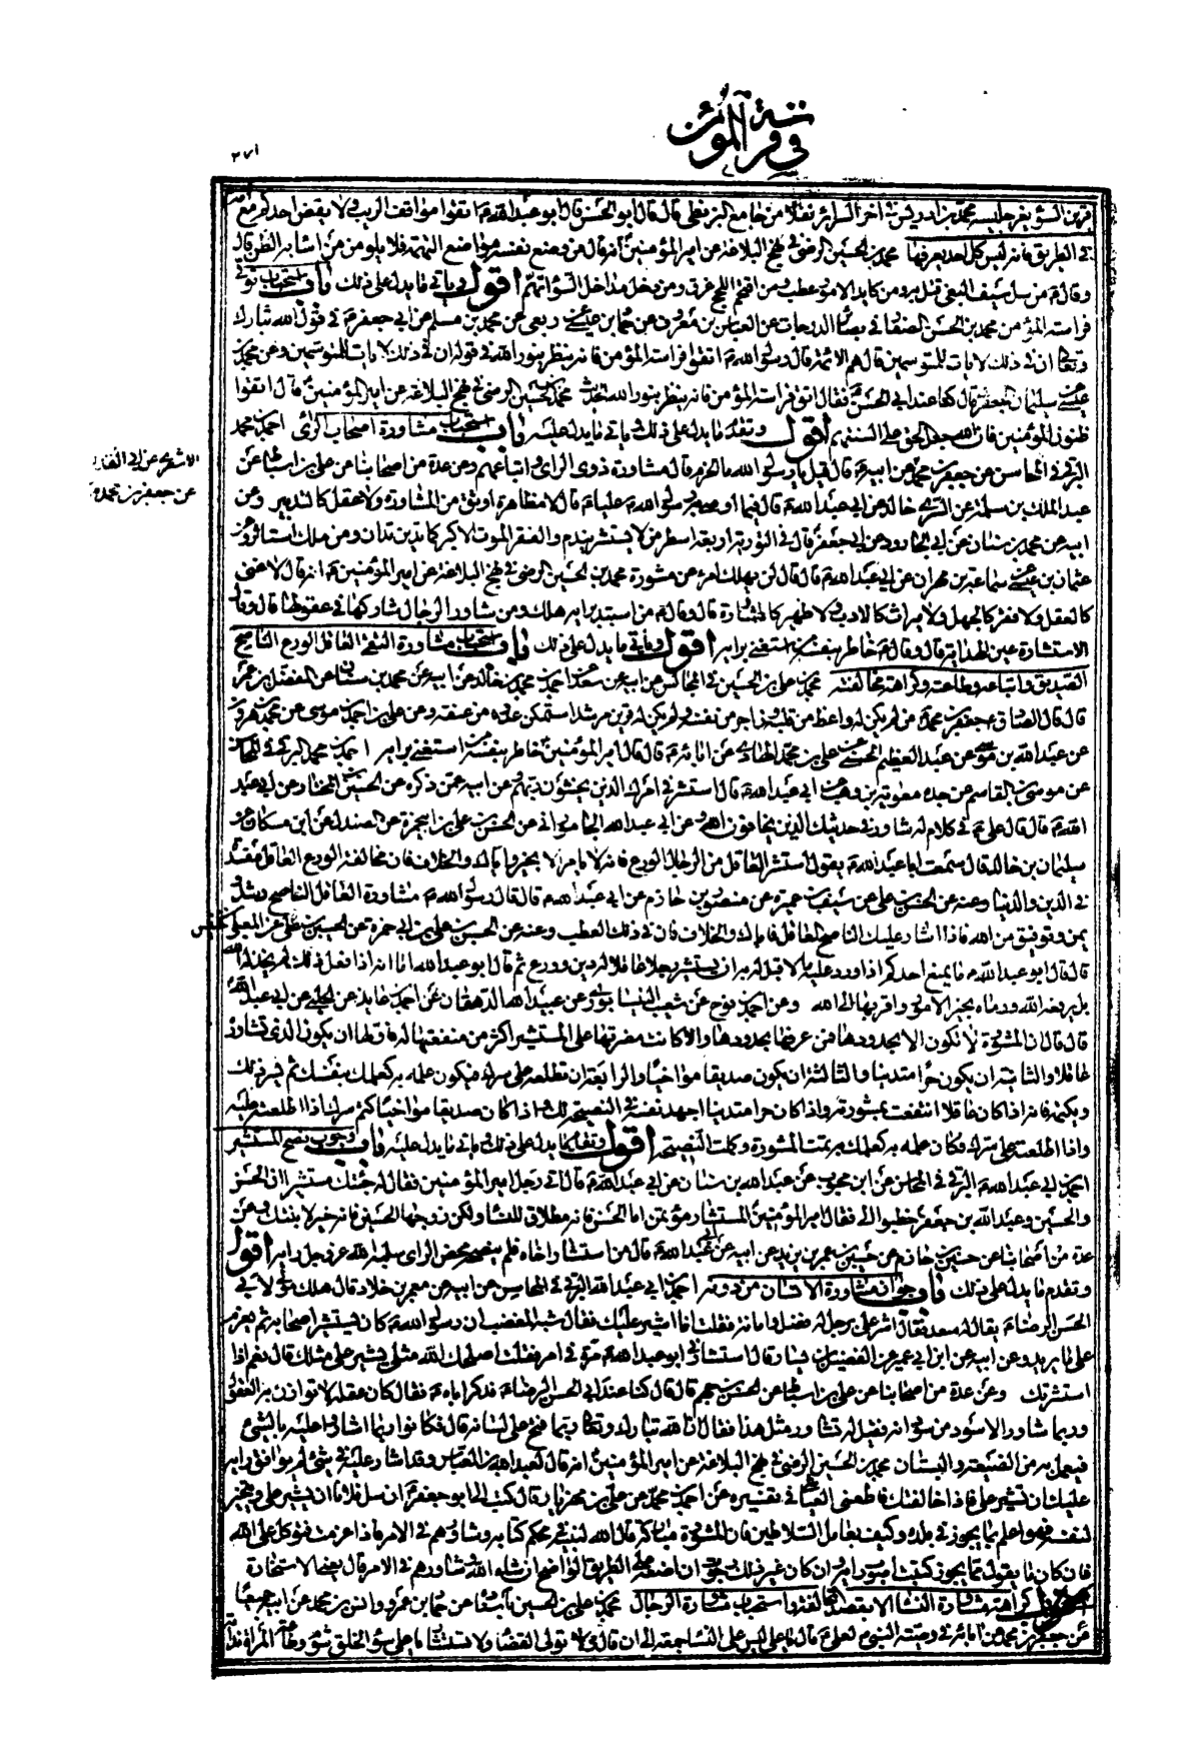 في فراسة المؤمن
٣٧١
قرين السوء يغر جليسه محمد بن ادريس في اخر السرائر نقلا من جامع البزنطي قال قال ابو الحسن قال ابو عبد الله ع اتقوا مواقف الريب ولا يقفن احدكم مع امه
في الطريق فانه ليس كل احد يعرفها محمد بن الحسين الرضي في نهج البلاغة عن امير المؤمنين انه قال من وضع نفسه مواضع التهمة فلا يلومن من اساء به الظن قال
وقال ع من سل سيف البغي قتل به ومن كابد الامور عطب ومن اقتحم اللجج غرق ومن دخل مداخل السوء اتهم اقول وياتي ما يدل على ذلك باب استحباب توقي
فراسة المؤمن محمد بن الحسن الصفار في بصائر الدرجات عن العباس بن معروف عن حماد بن عيسى عن ربعي عن محمد بن مسلم عن ابي جعفر ع في قول الله تبارك
وتعالى ان في ذلك لايات للمتوسمين قال هم الائمة قال رسول الله ص اتقوا فراسة المؤمن فانه ينظر بنور الله في قوله ان في ذلك لايات للمتوسمين وعن محمد بن
عيسى عن سليمان الجعفري قال كنا عند ابي الحسن ع فقال اتق فراسة المؤمن فانه ينظر بنور الله الحديث محمد بن الحسين الرضي في نهج البلاغة عن امير المؤمنين قال اتقوا
ظنون المؤمنين فان الله جعل الحق على السنتهم اقول وتقدم ما يدل على ذلك وياتي ما يدل عليه باب استحباب مشاورة اصحاب الراي احمد بن محمد
البرقي في المحاسن عن جعفر بن محمد عن ابيه ع قال قيل يا رسول الله ما الحزم قال مشاورة ذوي الراي واتباعهم وعن عدة من اصحابنا عن علي بن اسباط عن
الاشعري عن ابن القداح
عن جعفر بن محمد ع
عبد الملك بن سلمة عن السري بن خالد عن ابي عبد الله ع قال فيما اوصى به رسول الله ص عليا ع قال لا مظاهرة اوثق من المشاورة ولا عقل كالتدبير وعن
ابيه عن محمد بن سنان عن ابي الجارود عن ابي جعفر ع قال في التورية اربعة اسطر من لا يستشر يندم والفقر الموت الاكبر كما تدين تدان ومن ملك استاثر وعن
عثمان بن عيسى عن سماعة بن مهران عن ابي عبد الله ع قال قال لن يهلك امرء عن مشورة محمد بن الحسين الرضي في نهج البلاغة عن امير المؤمنين ع انه قال لا غنى
كالعقل ولا فقر كالجهل ولا ميراث كالادب ولا ظهير كالمشاورة قال وقال ع من استبد برايه هلك ومن شاور الرجال شاركها في عقولها قال وقال
الاستشارة عين الهداية قال وقال ع خاطر بنفسه من استغنى برايه اقول وياتي ما يدل على ذلك باب استحباب مشاورة التقي العاقل الورع الناصح
الصديق واتباعه وطاعته وكراهة مخالفته محمد بن علي بن الحسين في المجالس عن ابيه عن سعد عن احمد بن محمد بن خالد عن ابيه عن محمد بن سنان عن المفضل بن عمر
قال قال الصادق جعفر بن محمد ع من لم يكن له واعظ من قلبه وزاجر من نفسه ولم يكن له قرين مرشد استمكن عدوه من عنقه وعن علي بن احمد بن موسى عن محمد بن هرون
عن عبد الله بن موسى عن عبد العظيم الحسني عن علي بن محمد الهادي عن ابائه ع قال قال امير المؤمنين خاطر بنفسه من استغنى برايه احمد بن محمد البرقي في المحاسن
عن موسى بن القاسم عن جده معوية بن وهب عن ابي عبد الله ع قال استشر في امرك الذين يخشون ربهم عن ابيه عمن ذكره عن الحسين بن المختار عن ابي عبد
الله ع قال قال علي ع في كلام له شاور في حديثك الذين يخافون الله وعن ابي عبد الله الجاموراني عن الحسن بن علي بن ابي حمزة عن الصندل عن ابن مسكان عن
سليمان بن خالد قال سمعت ابا عبد الله ع يقول استشر العاقل من الرجال الورع فانه لا يامر الا بخير واياك والخلاف فان مخالفة الورع العاقل مفسدة
في الدين والدنيا وعنه عن الحسن بن علي عن سيف بن عميرة عن منصور بن حازم عن ابي عبد الله ع قال قال رسول الله ص مشاورة العاقل الناصح رشد و
يمن وتوفيق من الله فاذا اشار عليك الناصح العاقل فاياك والخلاف فان في ذلك العطب وعنه عن الحسن بن علي بن ابي حمزة عن الحسين بن علي عن المعلى بن خنيس
قال قال ابو عبد الله ع ما يمنع احدكم اذا ورد عليه ما لا قبل له به ان يستشير رجلا عاقلا له دين وورع ثم قال ابو عبد الله اما انه اذا فعل ذلك لم يخذله الله
بل يرفعه الله ورماه بخير الامور واقربها الى الله وعن احمد بن نوح عن شعيب النيسابوري عن عبيد الله الدهقان عن احمد بن عائذ عن الحلبي عن ابي عبد الله
قال قال ان المشورة لا تكون الا بحدودها فمن عرفها بحدودها والا كانت مضرتها على المستشير اكثر من منفعتها له فاولها ان يكون الذي تشاوره
عاقلا والثانية ان يكون حرا متدينا والثالثة ان يكون صديقا مواخيا والرابعة ان تطلعه على سرك فيكون علمه به كعلمك بنفسك ثم يسر ذلك
ويكتمه فانه اذا كان عاقلا انتفعت بمشورته واذا كان حرا متدينا اجهد نفسه في النصيحة لك واذا كان صديقا مواخيا كتم سرك اذا اطلعته عليه
واذا اطلعته على سرك فكان علمه به كعلمك به تمت المشورة وكملت النصيحة اقول وتقدم ما يدل على ذلك وياتي ما يدل عليه باب وجوب نصح المستشير
احمد بن ابي عبد الله البرقي في المحاسن عن ابن محبوب عن عبد الله بن سنان عن ابي عبد الله ع قال اتى رجل امير المؤمنين فقال له جئتك مستشيرا ان الحسن
والحسين وعبد الله بن جعفر خطبوا الي فقال امير المؤمنين المستشار مؤتمن اما الحسن فانه مطلاق للنساء ولكن زوجها الحسين فانه خير لابنتك وعن
عدة من اصحابنا عن حسين بن حازم عن حسين بن عمر بن يزيد عن ابيه عن ابي عبد الله ع قال من استشار اخاه فلم ينصحه محض الراي سلبه الله عز وجل رايه اقول
وتقدم ما يدل على ذلك باب جواز مشاورة الانسان من دونه احمد بن ابي عبد الله البرقي في المحاسن عن ابيه عن معمر بن خلاد قال هلك مولى لابي
الحسن الرضا ع يقال له سعد فقال اشر علي برجل له فضل وامانة فقلت انا اشير عليك فقال شبه المغضب ان رسول الله ص كان يستشير اصحابه ثم يعزم
على ما يريد وعن ابيه عن ابن ابي عمير عن الفضيل بن يسار قال استشارني ابو عبد الله ع مرة في امر فقلت اصلحك الله مثلي يشير على مثلك قال نعم اذا
استشرتك وعن عدة من اصحابنا عن علي بن اسباط عن الحسن بن جهم قال قال كنا عند ابي الحسن الرضا ع فذكر اباه ع فقال كان عقله لا توازن به العقول
وربما شاور الاسود من سودانه فقيل له تشاور مثل هذا فقال ان الله تبارك وتعالى ربما فتح على لسانه قال فكانوا ربما اشاروا عليه بالشيء
فيعمل به من الضيعة والبستان محمد بن الحسين الرضي في نهج البلاغة عن امير المؤمنين انه قال لعبد الله بن العباس وقد اشار عليه في شيء لم يوافق رايه
عليك ان تشير علي فاذا خالفتك فاطعني العياشي في تفسيره عن احمد بن محمد عن علي بن مهزيار قال كتب الي ابو جعفر ان سل فلانا ان يشير علي ويتخير
لنفسه فهو اعلم بما يجوز في بلده وكيف يعامل السلاطين فان المشورة مباركة قال الله لنبيه في محكم كتابه وشاورهم في الامر فاذا عزمت فتوكل على الله
فان كان ما يقول مما يجوز كتبت اصوب رايه وان كان غير ذلك رجوت ان اضعه على الطريق الواضح ان شاء الله وشاورهم في الامر قال يعني الاستخارة
باب كراهة مشاورة النساء الا بقصد المخالفة واستحباب مشاورة الرجال محمد بن علي بن الحسين باسناده عن حماد بن عمرو وانس بن محمد عن ابيه جميعا
عن جعفر بن محمد عن ابائه في وصية النبي ص لعلي ع قال يا علي ليس على النساء جمعة الى ان قال ولا تولى القضاء ولا تستشار يا علي سوء الخلق شؤم وطاعة المراة ندامة